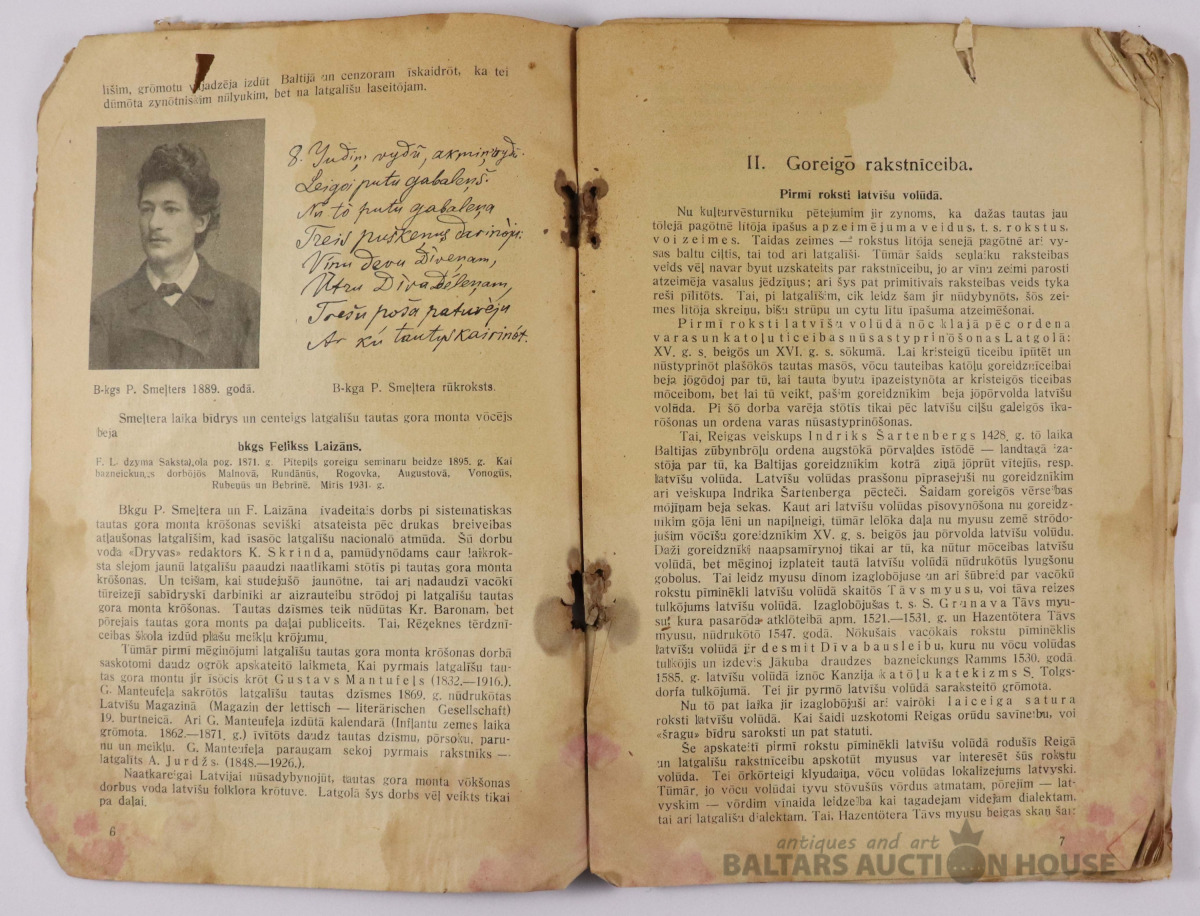 līšim, grōmotu vajadzēja izdūt Baltijā un cenzoram īskaidrōt, ka tei
dūmōta zynōtnīskim nūlyukim, bet na latgalīšu laseitōjam.
8. Yudiņ vydū, akmiņ vydū
Leigoj putu gabaleņš.
Nu tō putu gabaleņa
Treis puškeņus darinōju:
Vīnu devu Dīveņam,
Ūtru Dīva dēleņam,
Trešu poša paturēju
Ar kū tautys kairinōt.
B-kgs P. Smeļters 1889. godā.
B-kga P. Smeļtera rūkroksts.
Smeļtera laika bīdrys un centeigs latgalīšu tautas gora monta vōcējs
beja
bkgs Feļikss Laizāns.
F. L. dzyma Sakstagola pog. 1871. g. Pīteŗpiļs goreigu seminaru beidze 1895. g. Kai
bazneickungs dorbōjōs Malnovā, Rundānūs, Rogovka, Augustovā, Vonogūs,
Rubeņūs un Bebrinē. Miris 1931. g.
Bkgu P. Smeļtera un F. Laizāna īvadeitais dorbs pi sistematiskas
tautas gora monta krōšonas seviški atsateista pēc drukas breiveibas
atļaušonas latgalīšim, kad īsasōc latgalīšu nacionalō atmūda. Šū dorbu
voda «Dryvas» redaktors K. Skrinda, pamūdynōdams caur laikrok-
sta slejom jaunū latgalīšu paaudzi naatlikami stōtis pi tautas gora monta
krōšonas. Un teišam, kai studejušō jaunōtne, tai ari nadaudzī vacōkī
tūreizejī sabīdryskī darbinīki ar aizrauteibu strōdoj pi latgalīšu tautas
gora monta krōšonas. Tautas dzīsmes teik nūdūtas Kr. Baronam, bet
pōrejais tautas gora monts pa daļai publiceits. Tai, Rēzeknes tērdznī-
ceibas škola izdūd plašu meikļu krōjumu.
Tūmār pirmī mēginōjumi latgalīšu tautas gora monta krōšonas dorbā
saskotomi daudz ogrōk apskateitō laikmeta. Kai pyrmais latgalīšu tau-
tas gora montu jir īsōcis krōt Gustavs Mantufeļs (1832.—1916.).
G. Manteufeļa sakrōtōs latgalīšu tautas dzīsmes 1869. g. nūdrukōtas
Latvīšu Magazinā (Magazin der lettisch — literärischen Gesellschaft)
19. burtneicā. Ari G. Manteufeļa izdūtā kalendarā (Infļantu zemes laika
grōmota. 1862.—1871. g.) īvītōts daudz tautas dzīsmu, pōrsoku, paru-
nu un meikļu. G. Manteufeļa paraugam sekoj pyrmais rakstnīks —
latgalīts A. Jurdžs. (1848.—1926.).
Naatkareigai Latvijai nūsadybynojūt, tautas gora monta vōkšonas
dorbus voda latvīšu folklora krōtuve. Latgolā šys dorbs vēļ veikts tikai
pa daļai.
6
II. Goreigō rakstnīceiba.
Pirmī roksti latvīšu volūdā.
Nu kuļturvēsturnīku pētejumim jir zynoms, ka dažas tautas jau
tōlejā pagōtnē lītōja īpašus apzeimējuma veidus, t. s. rokstus,
voi zeimes. Taidas zeimes — rokstus lītōja senejā pagōtnē ari vy-
sas baltu ciļtis, tai tod ari latgalīši. Tūmār šaids seņlaiku raksteibas
veids vēļ navar byut uzskateits par rakstnīceibu, jo ar vīnu zeimi parosti
atzeimēja vasalus jēdzīņus; ari šys pat primitivais raksteibas veids tyka
reši pīlītōts. Tai, pi latgalīšim, cik leidz šam jir nūdybynōts, šōs zei-
mes lītōja skreiņu, bišu strūpu un cytu lītu īpašuma atzeimēšonai.
Pirmī roksti latvīšu volūdā nōc klajā pēc ordena
varas un katoļu ticeibas nūsastyprinōšonas Latgolā:
XV. g. s. beigōs un XVI. g. s. sōkumā. Lai kristeigū ticeibu īpūtēt un
nūstyprinōt plašōkōs tautas masōs, vōcu tauteibas katōļu goreidznīceibai
beja jōgōdoj par tū, lai tauta byutu īpazeistynōta ar kristeigōs ticeibas
mōceibom, bet lai tū veikt, pašim goreidznīkim beja jōpōrvolda latvīšu
volūda. Pi šō dorba varēja stōtīs tikai pēc latvīšu ciļšu galeigōs īka-
rōšonas un ordena varas nūsastyprinōšonas.
Tai, Reigas veiskups Indriks Šartenbergs 1428. g. tō laika
Baltijas zūbynbrōļu ordena augstōkā pōrvaļdes īstōdē — landtagā iza-
stōja par tū, ka Baltijas goreidznīkim kotrā ziņā jōprūt vītejūs, resp.
latvīšu volūda. Latvīšu volūdas prasšonu pīprasejuši nu goreidznīkim
ari veiskupa Indrika Šartenberga pēcteči. Šaidam goreigōs vērseibas
mōjinam beja sekas. Kaut ari latvīšu volūdas pīsovynōšona nu goreidz-
nīkim gōja lēni un napiļneigi, tūmār lelōka daļa nu myusu zemē strōdo-
jušim vōcīšu goreidznīkim XV. g. s. beigōs jau pōrvolda latvīšu volūdu.
Daži goreidznīki naapsamīrynoj tikai ar tū, ka nūtur mōceibas latvīšu
volūdā, bet mēginoj izplateit tautā latvīšu volūdā nūdrukōtūs lyugšonu
gobolus. Tai leidz myusu dīnom izaglobōjuse un ari šūbreid par vacōkū
rokstu pīminēkli latvīšu volūdā skaitōs Tāvs myusu, voi tāva reizes
tulkōjums latvīšu volūdā. Izaglobōjušas t. s. S. Grunava Tāvs myu-
su, kura pasarōda atklōteibā apm. 1521.—1531. g. un Hazentōtera Tāvs
myusu, nūdrukōtō 1547. godā. Nōkušais vacōkais rokstu pīmineklis
latvīšu volūdā jir desmit Dīva bausleibu, kuru nu vōcu volūdas
tulkōjis un izdevis Jākuba draudzes bazneickungs Ramms 1530. godā.
1585. g. latvīšu volūdā iznōc Kanzija katoļu katekizms S. Tolgs-
dorfa tulkōjumā. Tei jir pyrmō latvīšu volūdā saraksteitō grōmota.
Nu tō pat laika jir izaglobōjuši ari vairōki laiceiga satura
roksti latvīšu volūdā. Kai šaidi uzskotomi Reigas orūdu savīneibu, voi
«šragu» bīdru saroksti un pat statuti.
Še apskateitī pirmī rokstu pīminēkli latvīšu volūdā rodušīs Reigā
un latgalīšu rakstnīceibu apskotūt myusus var interesēt šūs rokstu
volūda. Tei ōrkōrteigi kļyudaina, vōcu volūdas lokalizejums latvyski.
Tūmār, jo vōcu volūdai tyvu stōvušūs vōrdus atmatam, pōrejim — lat-
vyskim — vōrdim vinaida leidzeiba kai tagadejam videjam dialektam,
tai ari latgalīšu dialektam. Tai, Hazentōtera Tāvs myusu beigas skaņ šai:
7
antiques and art
BALTARS AUCTION HOUSE